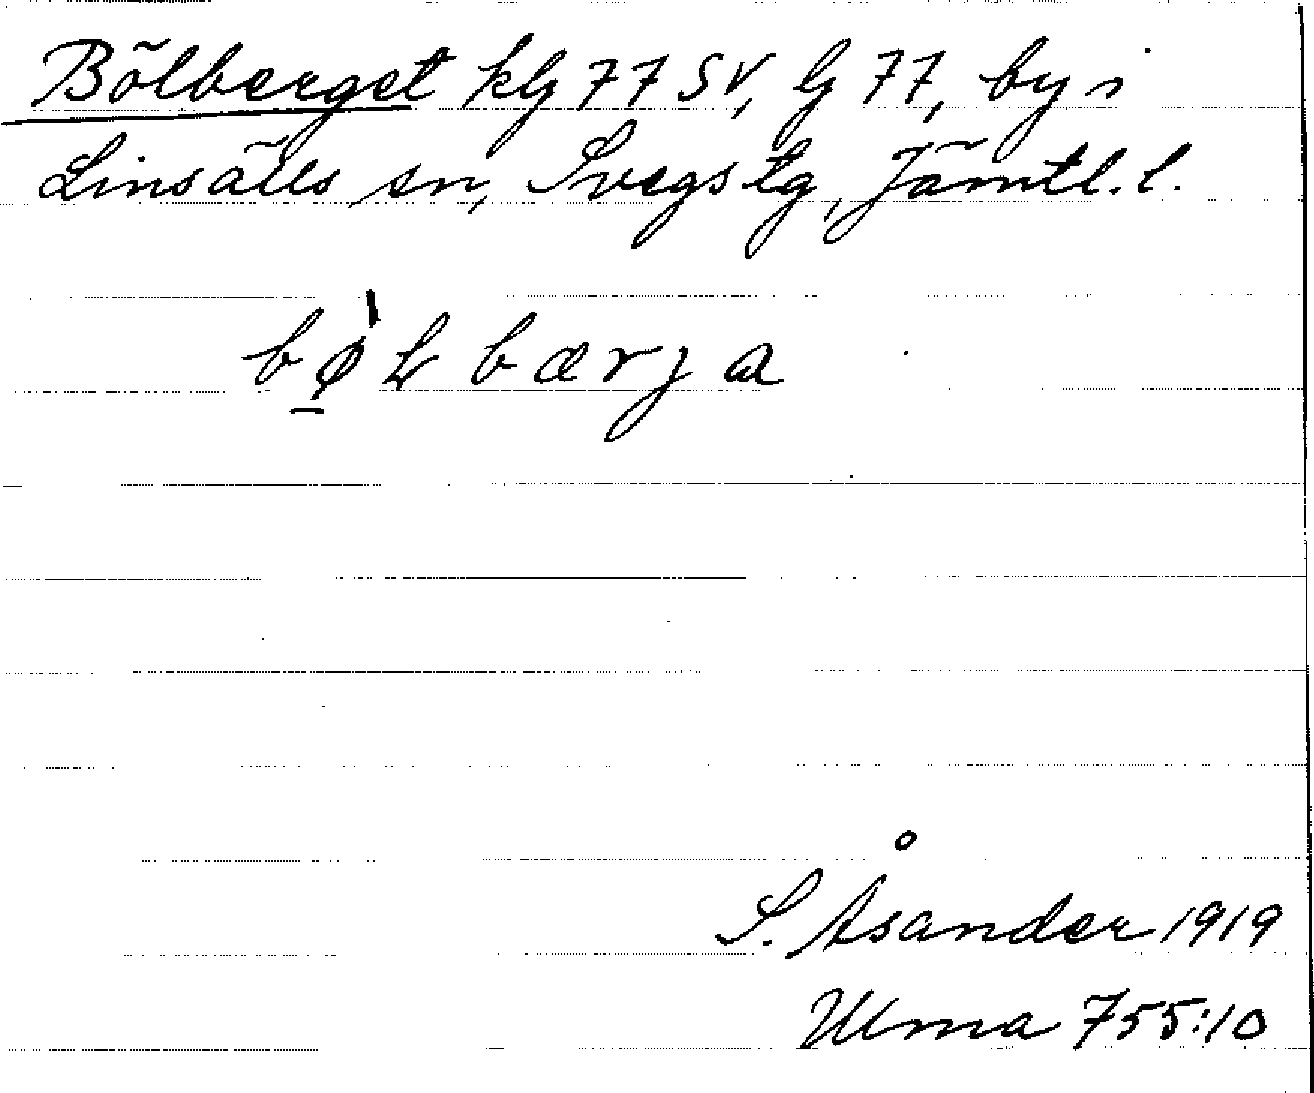 Bölberget klg 77 SV, lg 77, by i
Linsälls sn, Svegs tg, Jämtl. l.
bø̠̀Ł bærja
S. Åsander 1919
Ulma 755:10